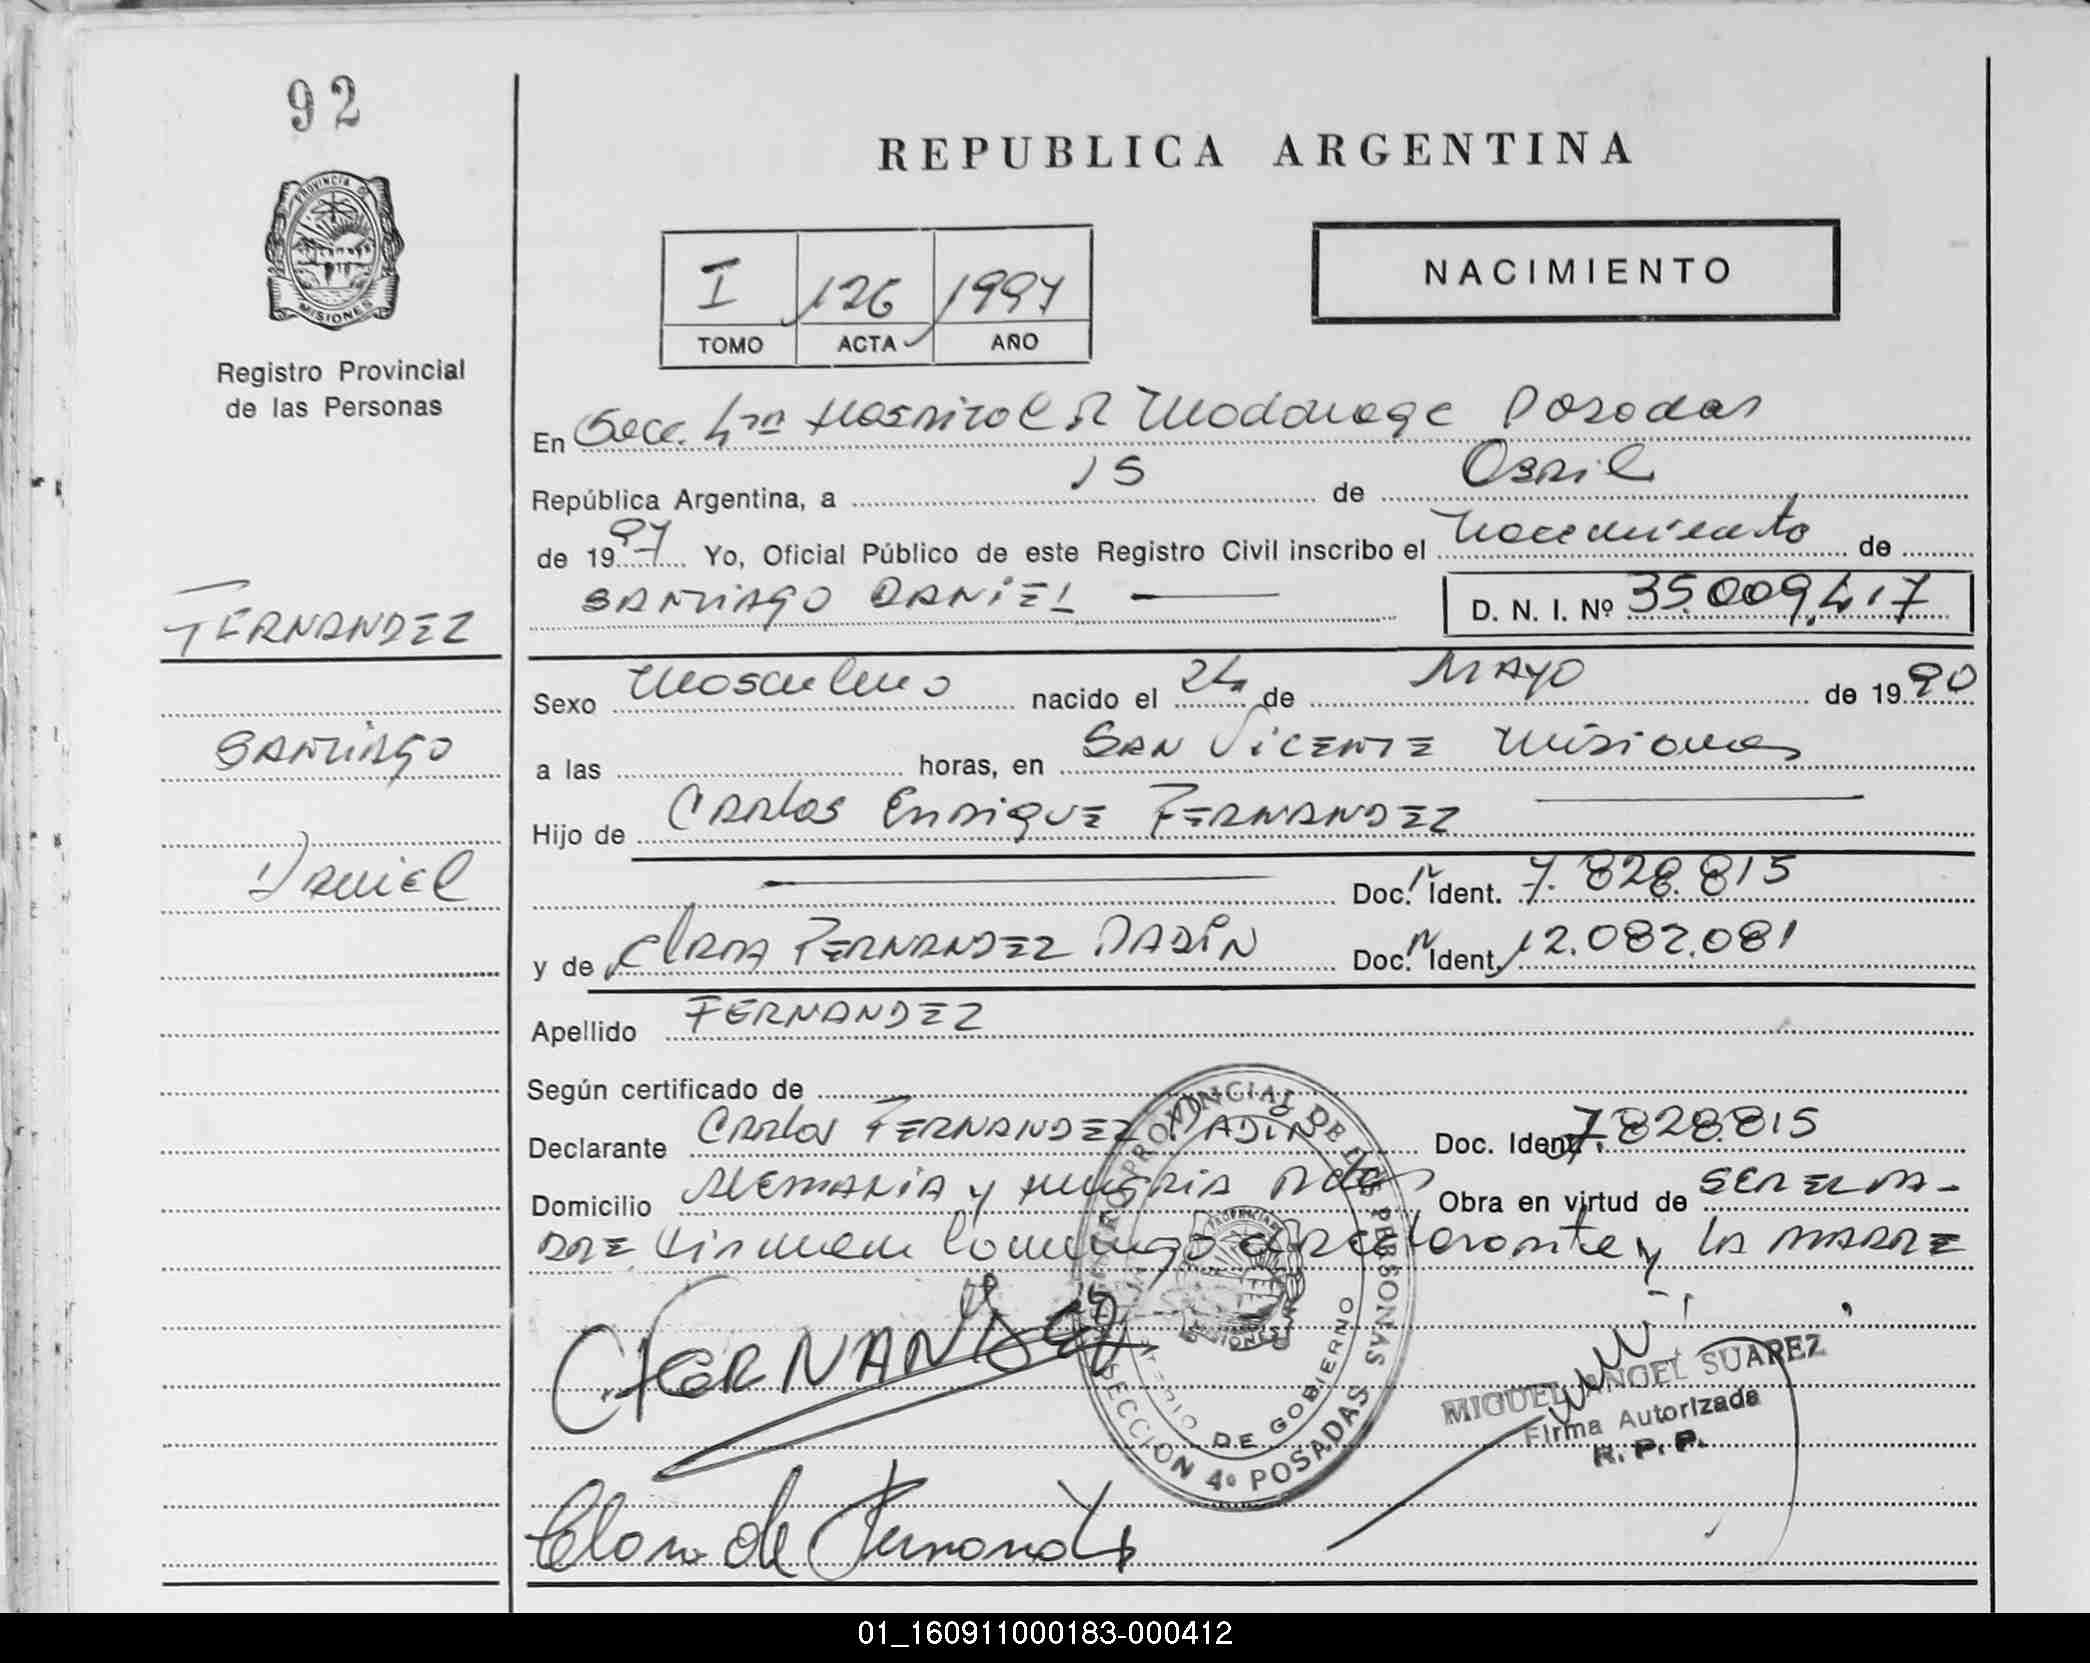 92
REPUBLICA ARGENTINA
PROVINCIA DE
MISIONES
Registro Provincial
de las Personas
I 126 1997
TOMO ACTA AÑO
NACIMIENTO
En Secc. 4ta Hospital R Madariaga Posadas
República Argentina, a 15 de Abril
de 1997 Yo, Oficial Público de este Registro Civil inscribo el Nacimiento de
SANTIAGO DANIEL D. N. I. Nº 35.009.417
FERNANDEZ
Sexo Masculino nacido el 24 de MAYO de 1990
SANTIAGO
a las horas, en SAN VICENTE Misiones
Hijo de Carlos Enrique FERNANDEZ
Daniel
Doc. Nº Ident. 7.828.815
y de Clara FERNANDEZ Doc. Nº Ident. 12.082.081
Apellido FERNANDEZ
Según certificado de
Declarante Carlos FERNANDEZ Doc. Ident. 7.828.815
Domicilio ALEMANIA y HUNGRIA Pdas Obra en virtud de SER EL PA-
DRE Firman conmigo declarante y LA MADRE
CFERNANDEZ
REGISTRO PROVINCIAL DE LAS PERSONAS
DE GOBIERNO
SECCION 4º POSADAS
MIGUEL ANGEL SUAREZ
Firma Autorizada
R. P. P.
Clara de Fernandez
01_160911000183-000412